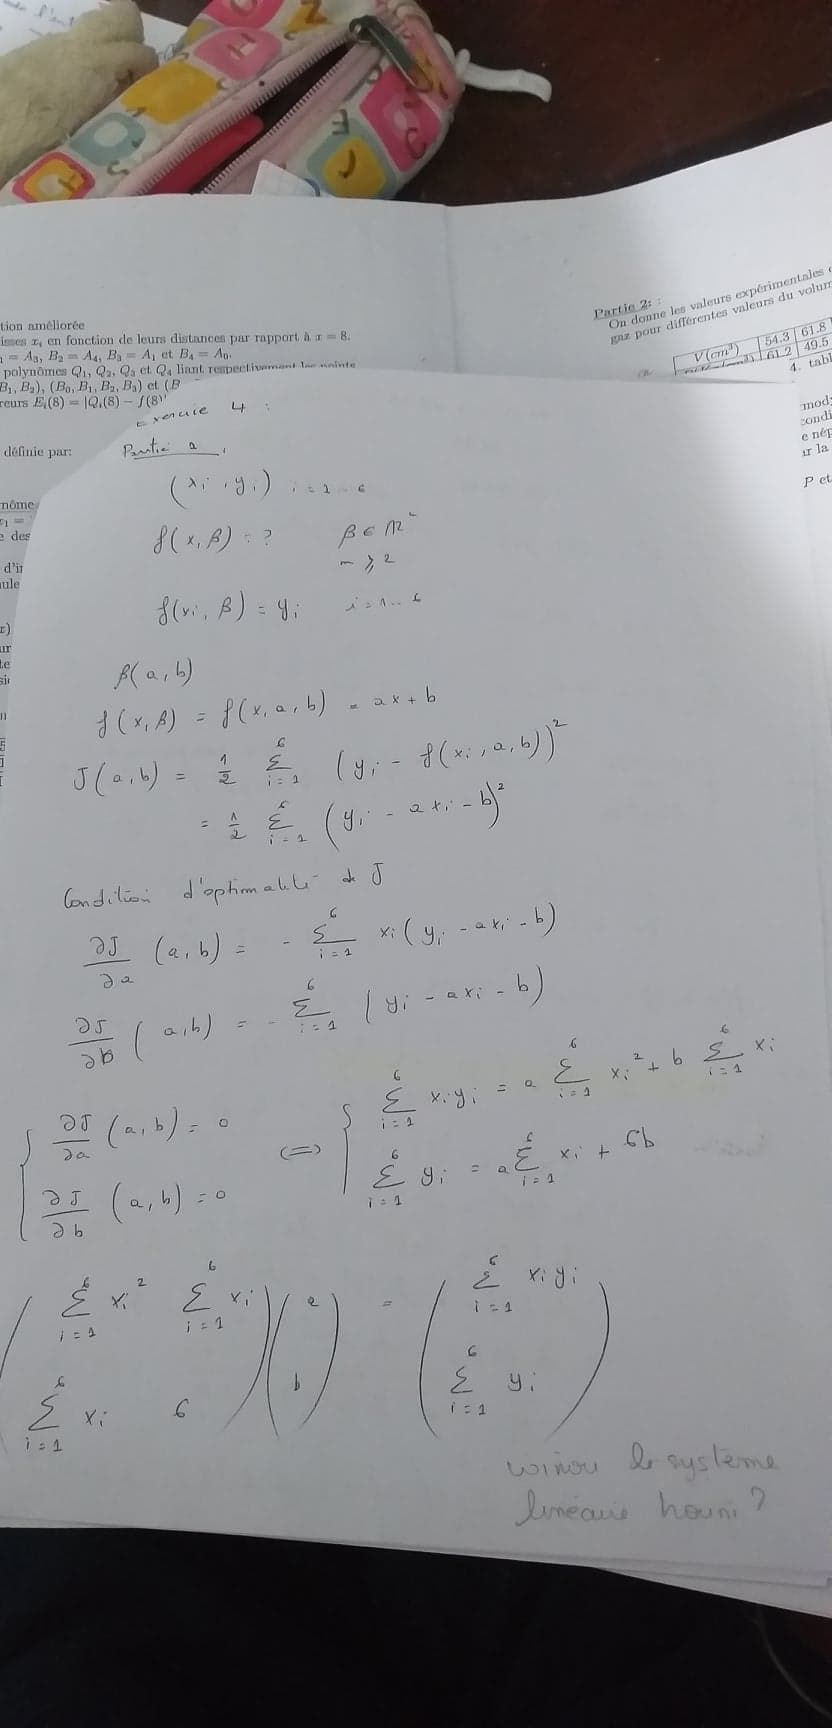 tion améliorée
isses x_i en fonction de leurs distances par rapport à x = 8.
= A_3, B_2 = A_4, B_3 = A_1 et B_4 = A_0.
polynômes Q_1, Q_2, Q_3 et Q_4 liant respectivement les points
B_1, B_2), (B_0, B_1, B_2, B_3) et (B
reurs E_i(8) = |Q_i(8) − f(8)
définie par:
nôme
e des
Partie 2: :
On donne les valeurs expérimentales
gaz pour différentes valeurs du volum
V(cm³) 54.3 61.8
61.2 49.5
4. tabl
mod
condi
e nép
ur la
P et
Exercice 4 :
Partie 1
(x_i, y_i) i = 1 .. 6
f(x, β) = ? β ∈ ℝ²
n ≥ 2
f(x_i, β) = y_i i = 1 .. 6
β(a, b)
f(x, β) = f(x, a, b) = ax + b
J(a, b) = 1/2 Σ_{i=1}^{6} (y_i − f(x_i, a, b))²
= 1/2 Σ_{i=1}^{6} (y_i − a x_i − b)²
Condition d'optimalité de J
∂J/∂a (a, b) = − Σ_{i=1}^{6} x_i (y_i − a x_i − b)
∂J/∂b (a, b) = − Σ_{i=1}^{6} (y_i − a x_i − b)
{ ∂J/∂a (a, b) = 0 <=> { Σ_{i=1}^{6} x_i y_i = a Σ_{i=1}^{6} x_i² + b Σ_{i=1}^{6} x_i
∂J/∂b (a, b) = 0 Σ_{i=1}^{6} y_i = a Σ_{i=1}^{6} x_i + 6b
( Σ_{i=1}^{6} x_i² Σ_{i=1}^{6} x_i ) ( a ) = ( Σ_{i=1}^{6} x_i y_i )
( Σ_{i=1}^{6} x_i 6 ) ( b ) ( Σ_{i=1}^{6} y_i )
winou le système
linéaire houni ?